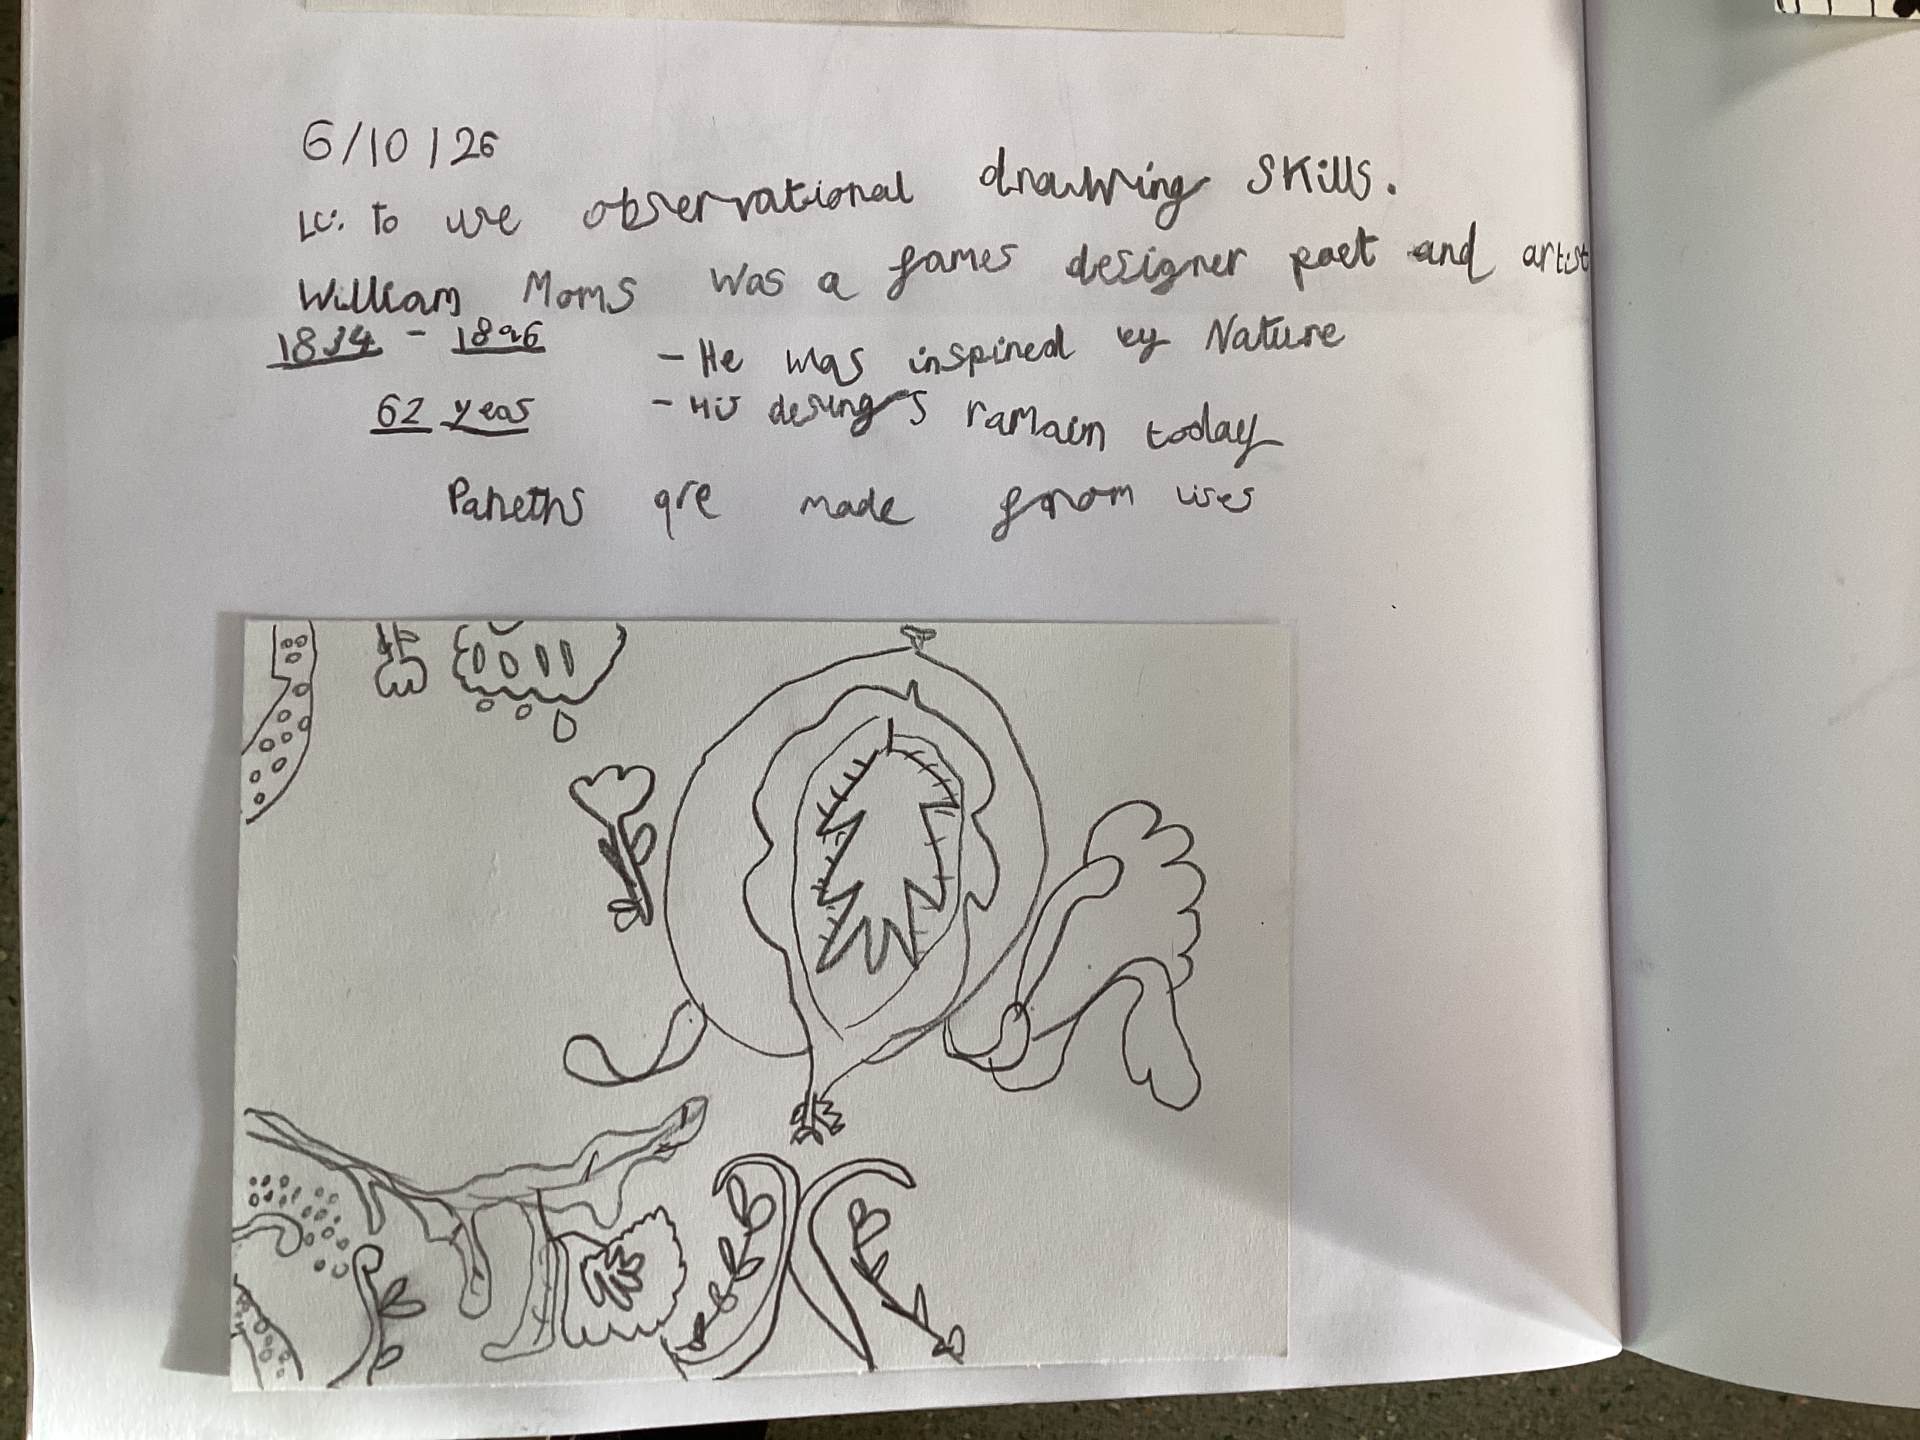 6/10/26
LC: To use observational drawing skills.
William Morris was a fames designer poet and artist
1834 - 1896
- He was inspired by Nature
62 years
- His desings ramain today
are made from